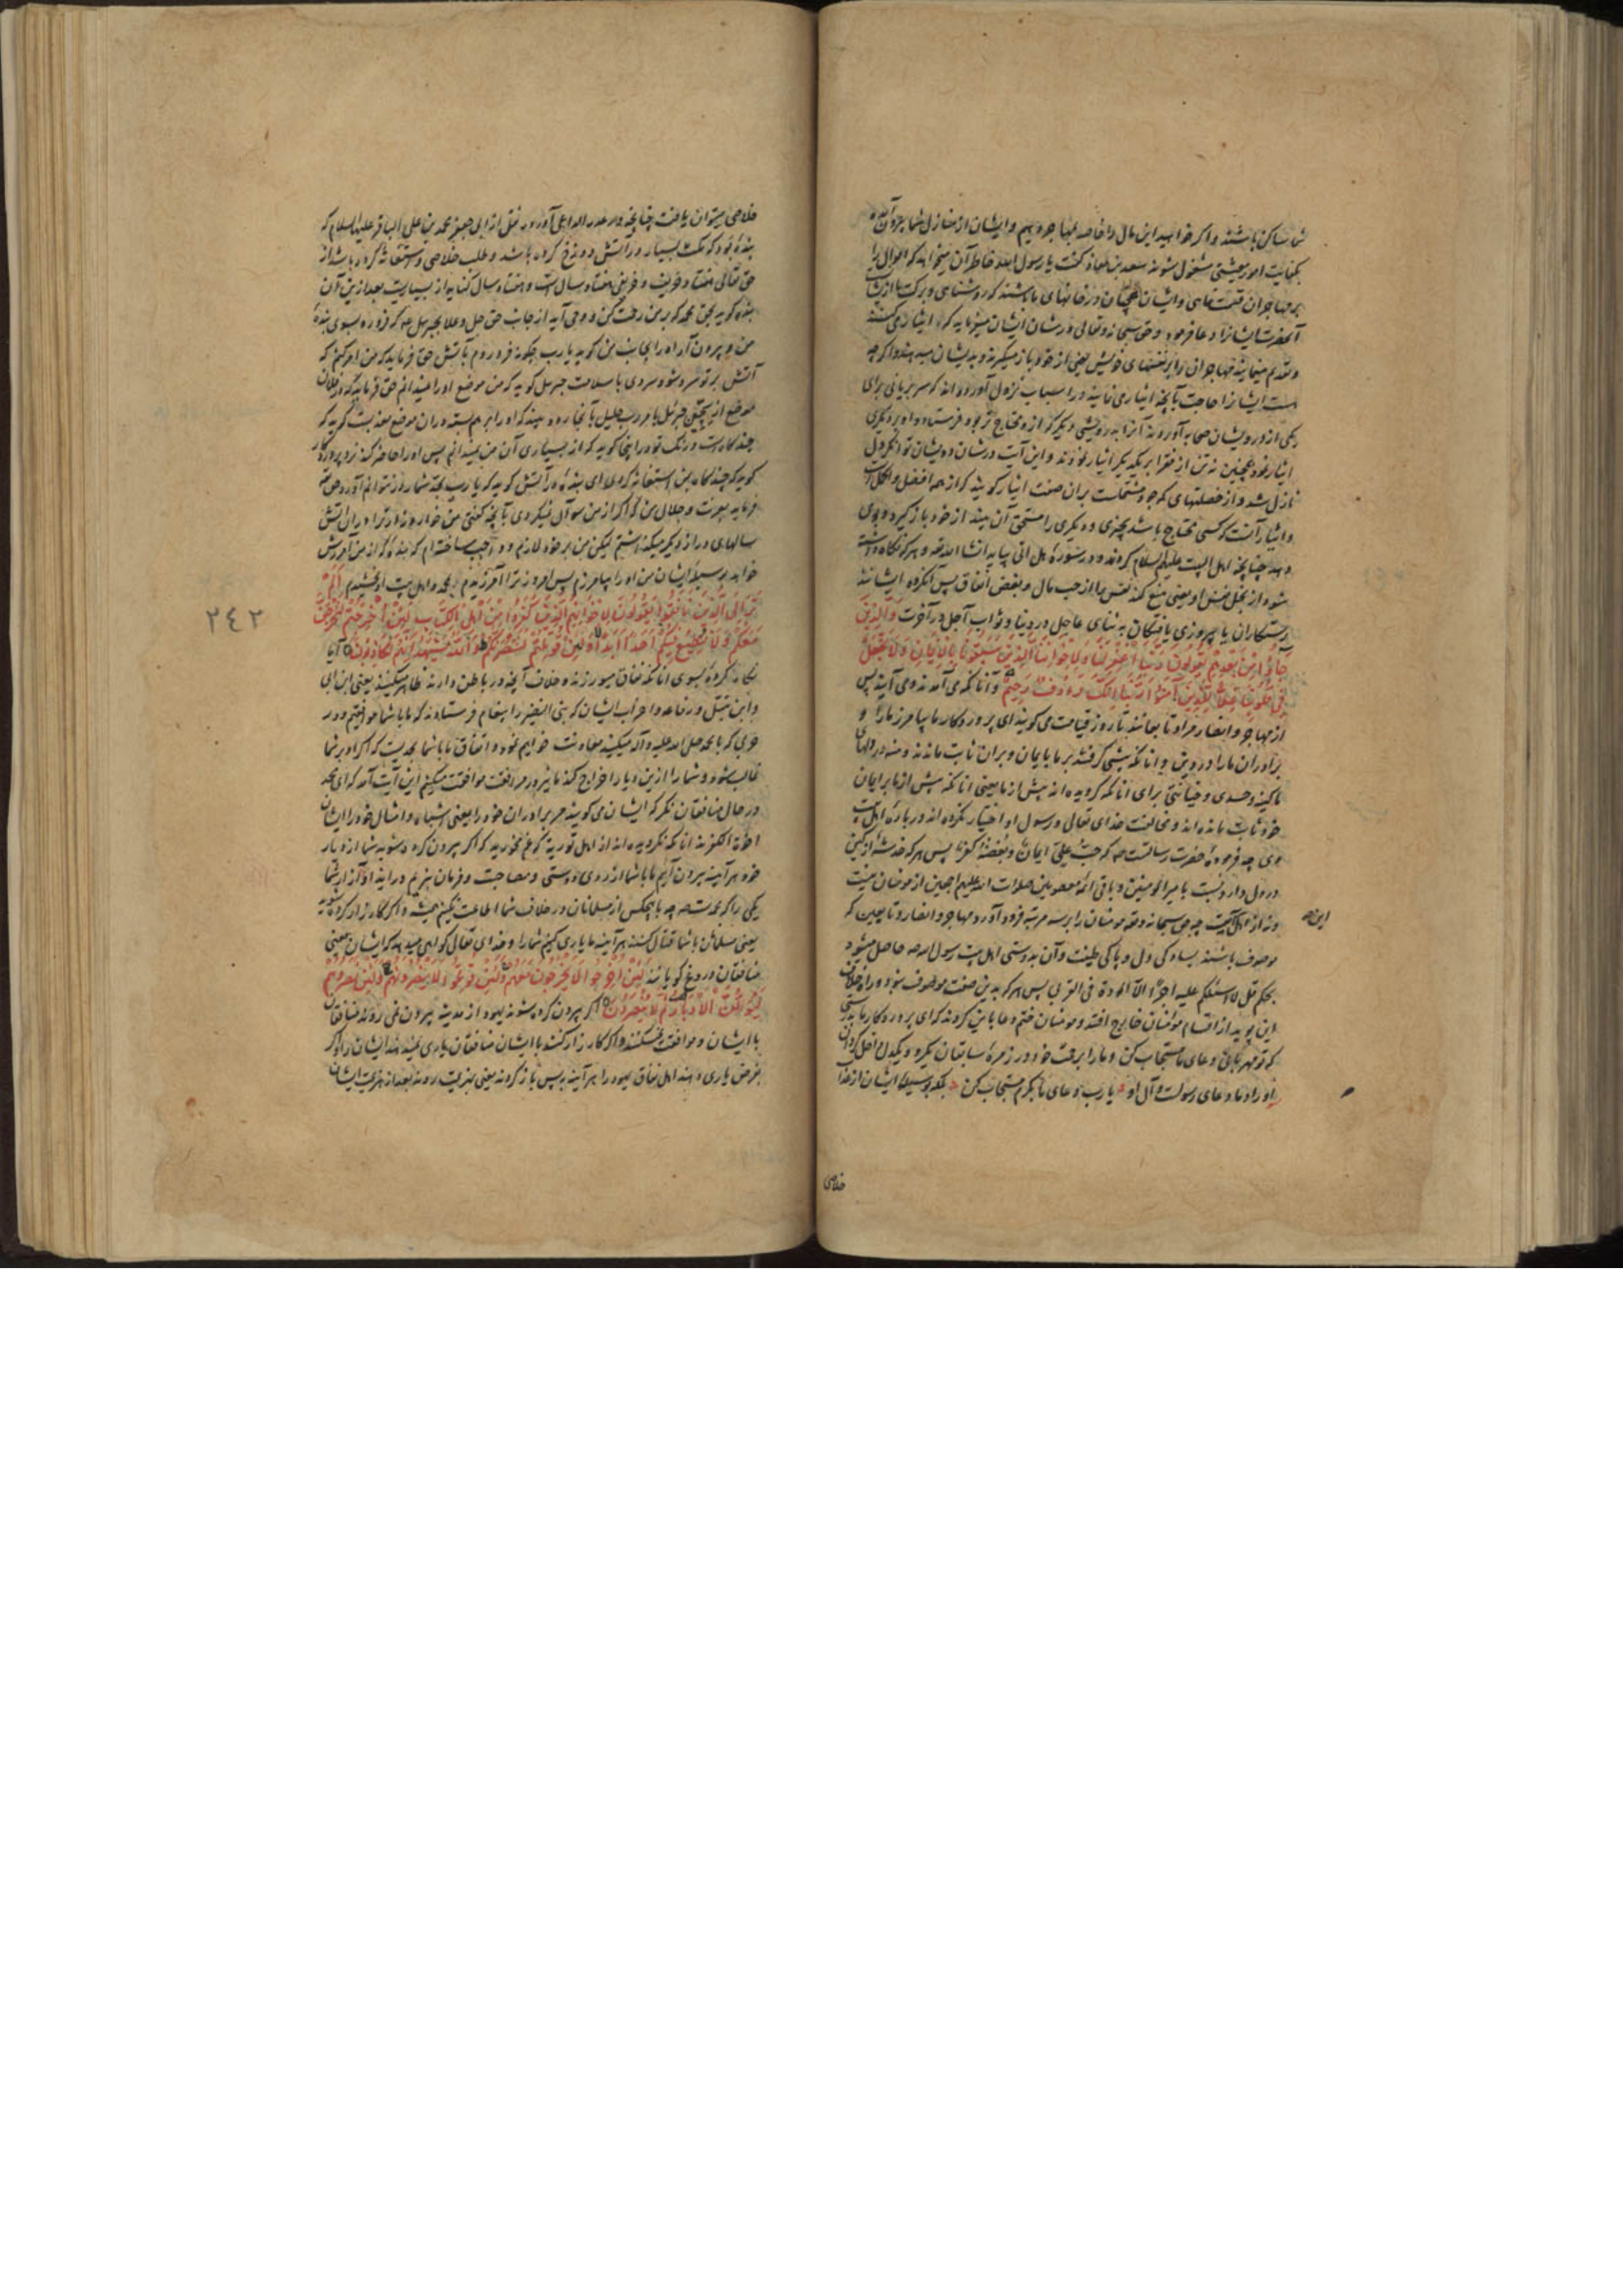 شما ساکن باشند و اگر خواهید این مال را خاصه بمهاجر دهیم و ایشان از منازل شما بیرون آمده
بکفایت امور معیشتی مشغول شوند سعد بن معاذ گفت یا رسول الله خاطر آن میخواهد که اموال را
بر مهاجران قسمت نمای و ایشان همچنان در خانهای ما باشند که روشنائی و برکت ما ازیشانست
آنحضرت ایشانرا دعا فرمود و حق سبحانه و تعالی در شان ایشان میفرماید که ایثار می کنند
و تقدیم مینمایند مهاجران را بر نفسهای خویش یعنی از خود باز میگیرند و بدیشان میدهند و اگر چه
هست ایشانرا حاجت بآنچه ایثار می نمایند و در اسباب نزول آورده اند که سر بریانی برای
یکی از درویشان صحابه آوردند آنرا به درویشی دیگر که ازو محتاج تر بود فرستاد و او بر دیگری
ایثار نمود همچنین نه تن از فقرا بر یکدیگر ایثار نمودند و این آیت در شان درویشان توانگر دل
نازل شد و از خصلتهای که جود مشتملست بران صفت ایثار گویند که از همه افضل و اکمل است
و ایثار آنست که کسی محتاج باشد بچیزی و دیگری را مستحق آن بیند از خود باز گیرد و بوی
دهد چنانچه اهل البیت علیهم السلام کردند و در سوره هل اتی بیاید انشا الله تعالی و هر که نگاه داشته
شود از بخل نفس او یعنی منع کند نفس را از حب مال و بغض انفاق پس آنگروه ایشانند
رستگاران یا پیروزی یافتگان به ثنای عاجل در دنیا و ثواب آجل در آخرت وَالَّذِينَ
جَاؤُا مِنْ بَعْدِهِمْ يَقُولُونَ رَبَّنَا اغْفِرْ لَنَا وَلِإِخْوَانِنَا الَّذِينَ سَبَقُونَا بِالْإِيمَانِ وَلَا تَجْعَلْ
فِي قُلُوبِنَا غِلًّا لِلَّذِينَ آمَنُوا رَبَّنَا إِنَّكَ رَءُوفٌ رَحِيمٌ و آنانکه می آمدند و می آیند پس
از مهاجر و انصار مراد تابعانند تا روز قیامت می گویند ای پروردگار ما بیامرز ما را و
برادران ما را در دین و آنانکه پیشی گرفتند بر ما بایمان و بران ثابت ماندند و منه در دلهای
ما کینه و حسدی و خیانتی برای آنانکه گرویده اند پیش از ما یعنی آنانکه پیش از ما بر ایمان
خود ثابت مانده اند و مخالفت خدای تعالی و رسول او اختیار نکرده اند در باره اهل بیت
وی چه فرموده حضرت رسالتست صه که حبّ علیّ ایمان و بغضه کفر پس هر که خدشه از کینی
در دل دارد نسبت با میر المومنین و باقی ائمه معصومین صلوات الله علیهم اجمعین از مومنان نیست
و نه از اهل آیت چه حق سبحانه و تعالی مومنان را بر سه مرتبه فرود آورد مهاجر و انصار و تابعین که
موصوف باشند بساده کی دل و پاکی طینت و آن بدوستی اهل بیت رسول الله صه حاصل میشود
بحکم قل لا اسئلکم علیه اجرا الا المودة فی القربی پس هر که بدین صفت موصوف نبود
این بوید از اقسام مومنان خارج افتد و مومنان ختم دعا باین کردند که ای پروردگار ما بدرستی
که تو مهربانی دعای ما مستجاب کن و ما را برحمت خود در زمره سابقان
یا رب دعای ما بکرم مستجاب کن
این
خلاصی
خلاصی میتوان یافت چنانچه در عدة الداعی آورده نقل از ابی جعفر محمد بن علی الباقر علیه السلام که
بنده بود که مکث بسیار در آتش دوزخ کرده باشد و طلب خلاصی و استغاثه کرده باشد از
حق تعالی هفتاد خریف و خریفی هفتاد سال است و هفتاد سال کنایه از بسیاریست بعد ازین آن
بنده گوید بحق محمد که بر من رحمت کن وحی آید از جانب حق جل و علا بجبرئیل که فرو رو بسوی بنده
من و بیرون آر او را بجانب من گوید یا رب چگونه فرو روم بآتش حق فرماید که من امر کنم که
آتش بر تو سرد شود سردی با سلامت جبرئیل گوید که من موضع او را نمیدانم حق فرماید که در فلان
موضع از سجین جبرئیل بامر رب جلیل بآنجا رود بیند که او را بر هم بسته دران موضع معذبست گوید که
چند گاهست درنگ تو در اینجا گوید که از بسیاری آن من نمیدانم پس او را حاضر کند نزد پروردگار
گوید که چند گاه بمن استغاثه کردی ای بنده در آتش گوید که یا رب بچه شمار در نتوانم آورد حق تعالی
فرماید بعزت و جلال من که اگر از من سوآل نمیکردی بآنچه گفتی من خوار و زارتر در آن آتش
سالهای دراز دیگر میگذاشتم لیکن من بر خود لازم و واجب ساخته ام که بنده که از من آمرزش
خواهد بوسیله ایشان من او را بیامرزم پس امروز ترا آمرزیدم بمحمد و اهل بیت او بخشیدم أَلَمْ
تَرَ إِلَى الَّذِينَ نَافَقُوا يَقُولُونَ لِإِخْوَانِهِمُ الَّذِينَ كَفَرُوا مِنْ أَهْلِ الْكِتَابِ لَئِنْ أُخْرِجْتُمْ لَنَخْرُجَنَّ
مَعَكُمْ وَلَا نُطِيعُ فِيكُمْ أَحَدًا أَبَدًا وَإِنْ قُوتِلْتُمْ لَنَنْصُرَنَّكُمْ وَاللَّهُ يَشْهَدُ إِنَّهُمْ لَكَاذِبُونَ آیا
نگاه نکردهٔ بسوی آنانکه نفاق میورزند و خلاف آنچه در باطن دارند ظاهر میکنند یعنی ابن ابی
و ابن نبتل و رفاعه و احزاب ایشان که بنی النضیر را پیغام فرستادند که ما با شما موافقیم و در
حربی که با محمد صلی الله علیه و آله میکنید معاونت خواهیم نمود و اتفاق ما با شما بحدیست که اگر او بر شما
غالب شود و شما را ازین دیار اخراج کند ما نیز در مرافقت موافقت میکنیم این آیت آمد که ای محمد
در حال منافقان نگر که ایشان می گویند مر برادران خود را یعنی اشباه و امثال خود را ایشان
اخوة الکفرند آنانکه نگرویده اند از اهل توریة که غم مخورید که اگر بیرون کرده شوید شما از دیار
خود هر آینه بیرون آییم ما با شما از روی دوستی و مصاحبت و فرمان نبریم در ایذا و آزار شما
یکی را که محمدست صه چه با هیچکس از مسلمانان در خلاف شما اطاعت نکنیم همیشه و اگر کارزار کرده شوید
یعنی مسلمانان با شما قتال کنند هر آینه ما یاری کنیم شما را و خدای تعالی گواهی میدهد که ایشان یعنی
منافقان دروغ گویانند لَئِنْ أُخْرِجُوا لَا يَخْرُجُونَ مَعَهُمْ وَلَئِنْ قُوتِلُوا لَا يَنْصُرُونَهُمْ وَلَئِنْ نَصَرُوهُمْ
لَيُوَلُّنَّ الْأَدْبَارَ ثُمَّ لَا يُنْصَرُونَ اگر بیرون کرده شوند یهود از مدینه بیرون نمی روند منافقان
با ایشان و موافقت نمیکنند و اگر کارزار کنند با ایشان منافقان یاری نمیدهند ایشانرا و اگر
بفرض یاری دهند اهل نفاق یهود را هر آینه به پس باز گردند یعنی بهزیمت روند بعد از هزیمت ایشان
٢٤٢